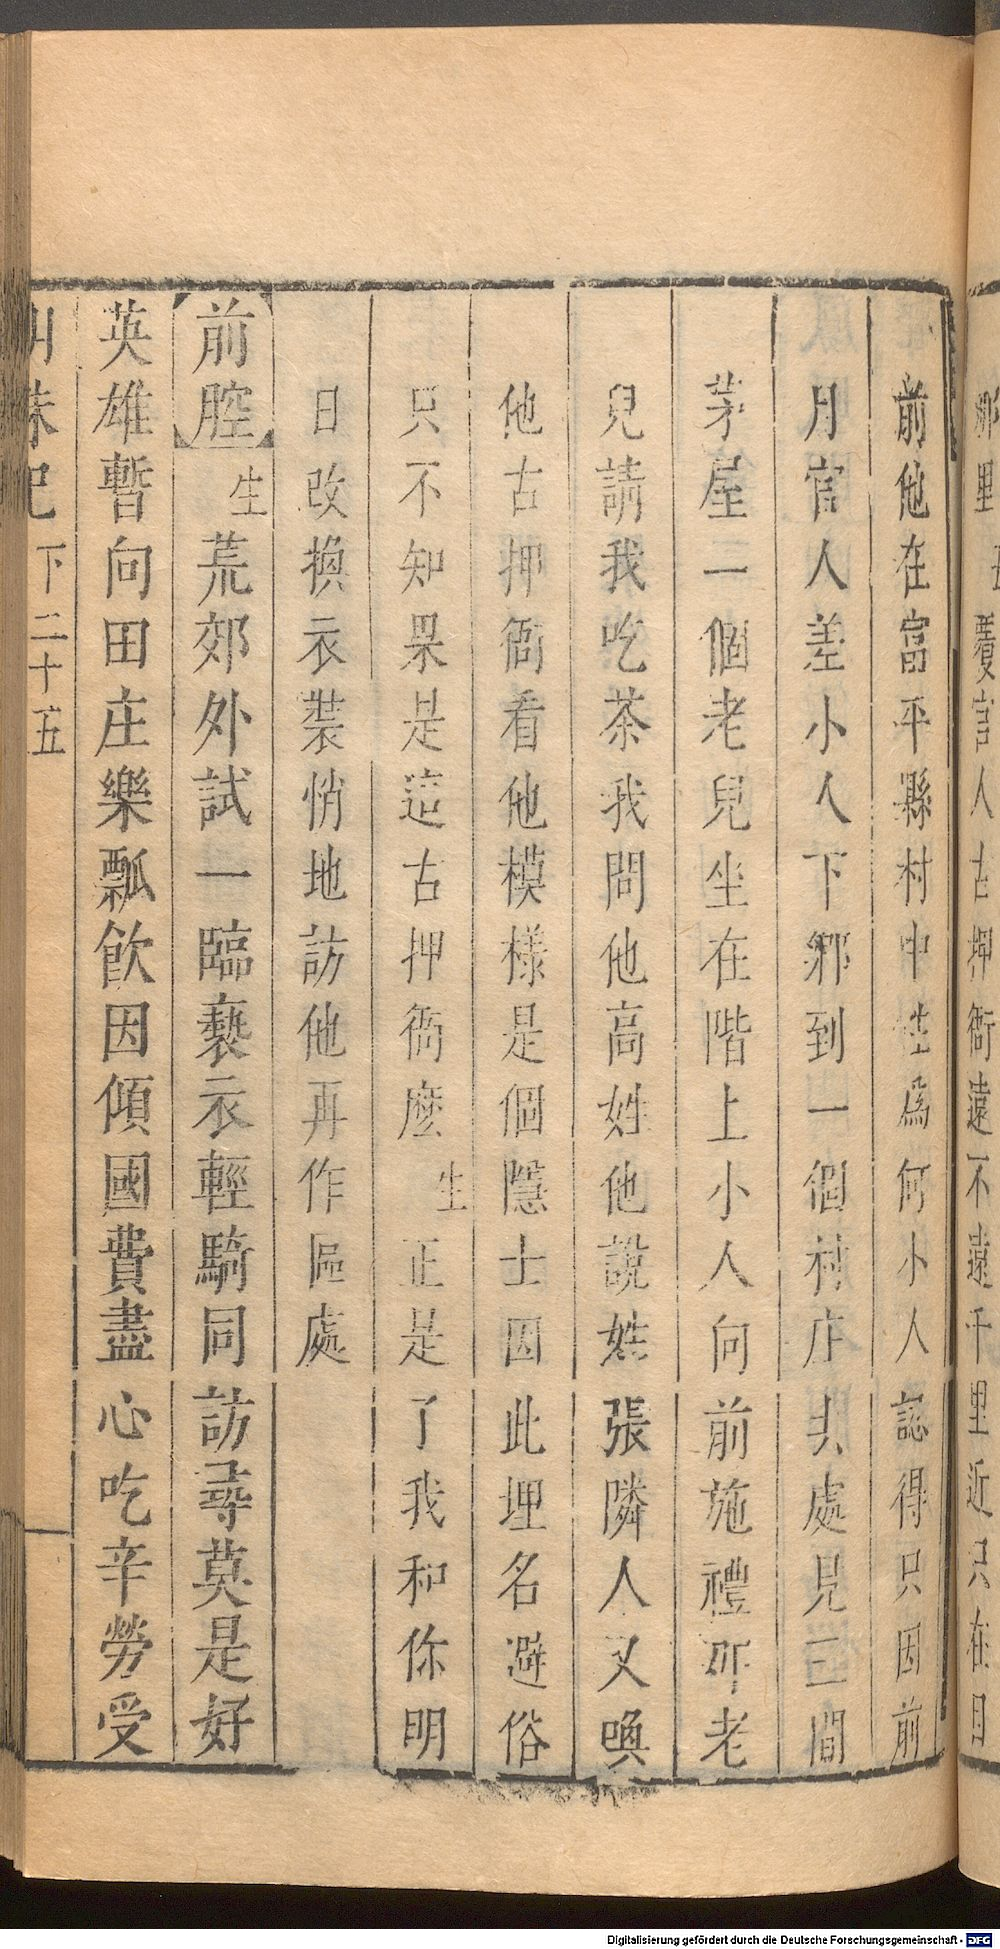 那里丑覆官人古押衙遠不遠千里近只在目
前他在富平縣村中生爲何小人認得只因前
月官人差小人下鄉到一個村庄去處見三間
茅屋一個老兒坐在階上小人向前施禮那老
兒請我吃茶我問他高姓他說姓張隣人又喚
他古押衙看他模樣是個隱士因此埋名避俗
只不知果是這古押衙麽生正是了我和你明
日改換衣裝悄地訪他再作區處
前腔生荒郊外試一臨褻衣輕騎同訪尋莫是好
英雄暫向田庄樂瓢飲因傾國費盡心吃辛勞受
明珠記 下 二十五
Digitalisierung gefördert durch die Deutsche Forschungsgemeinschaft - DFG